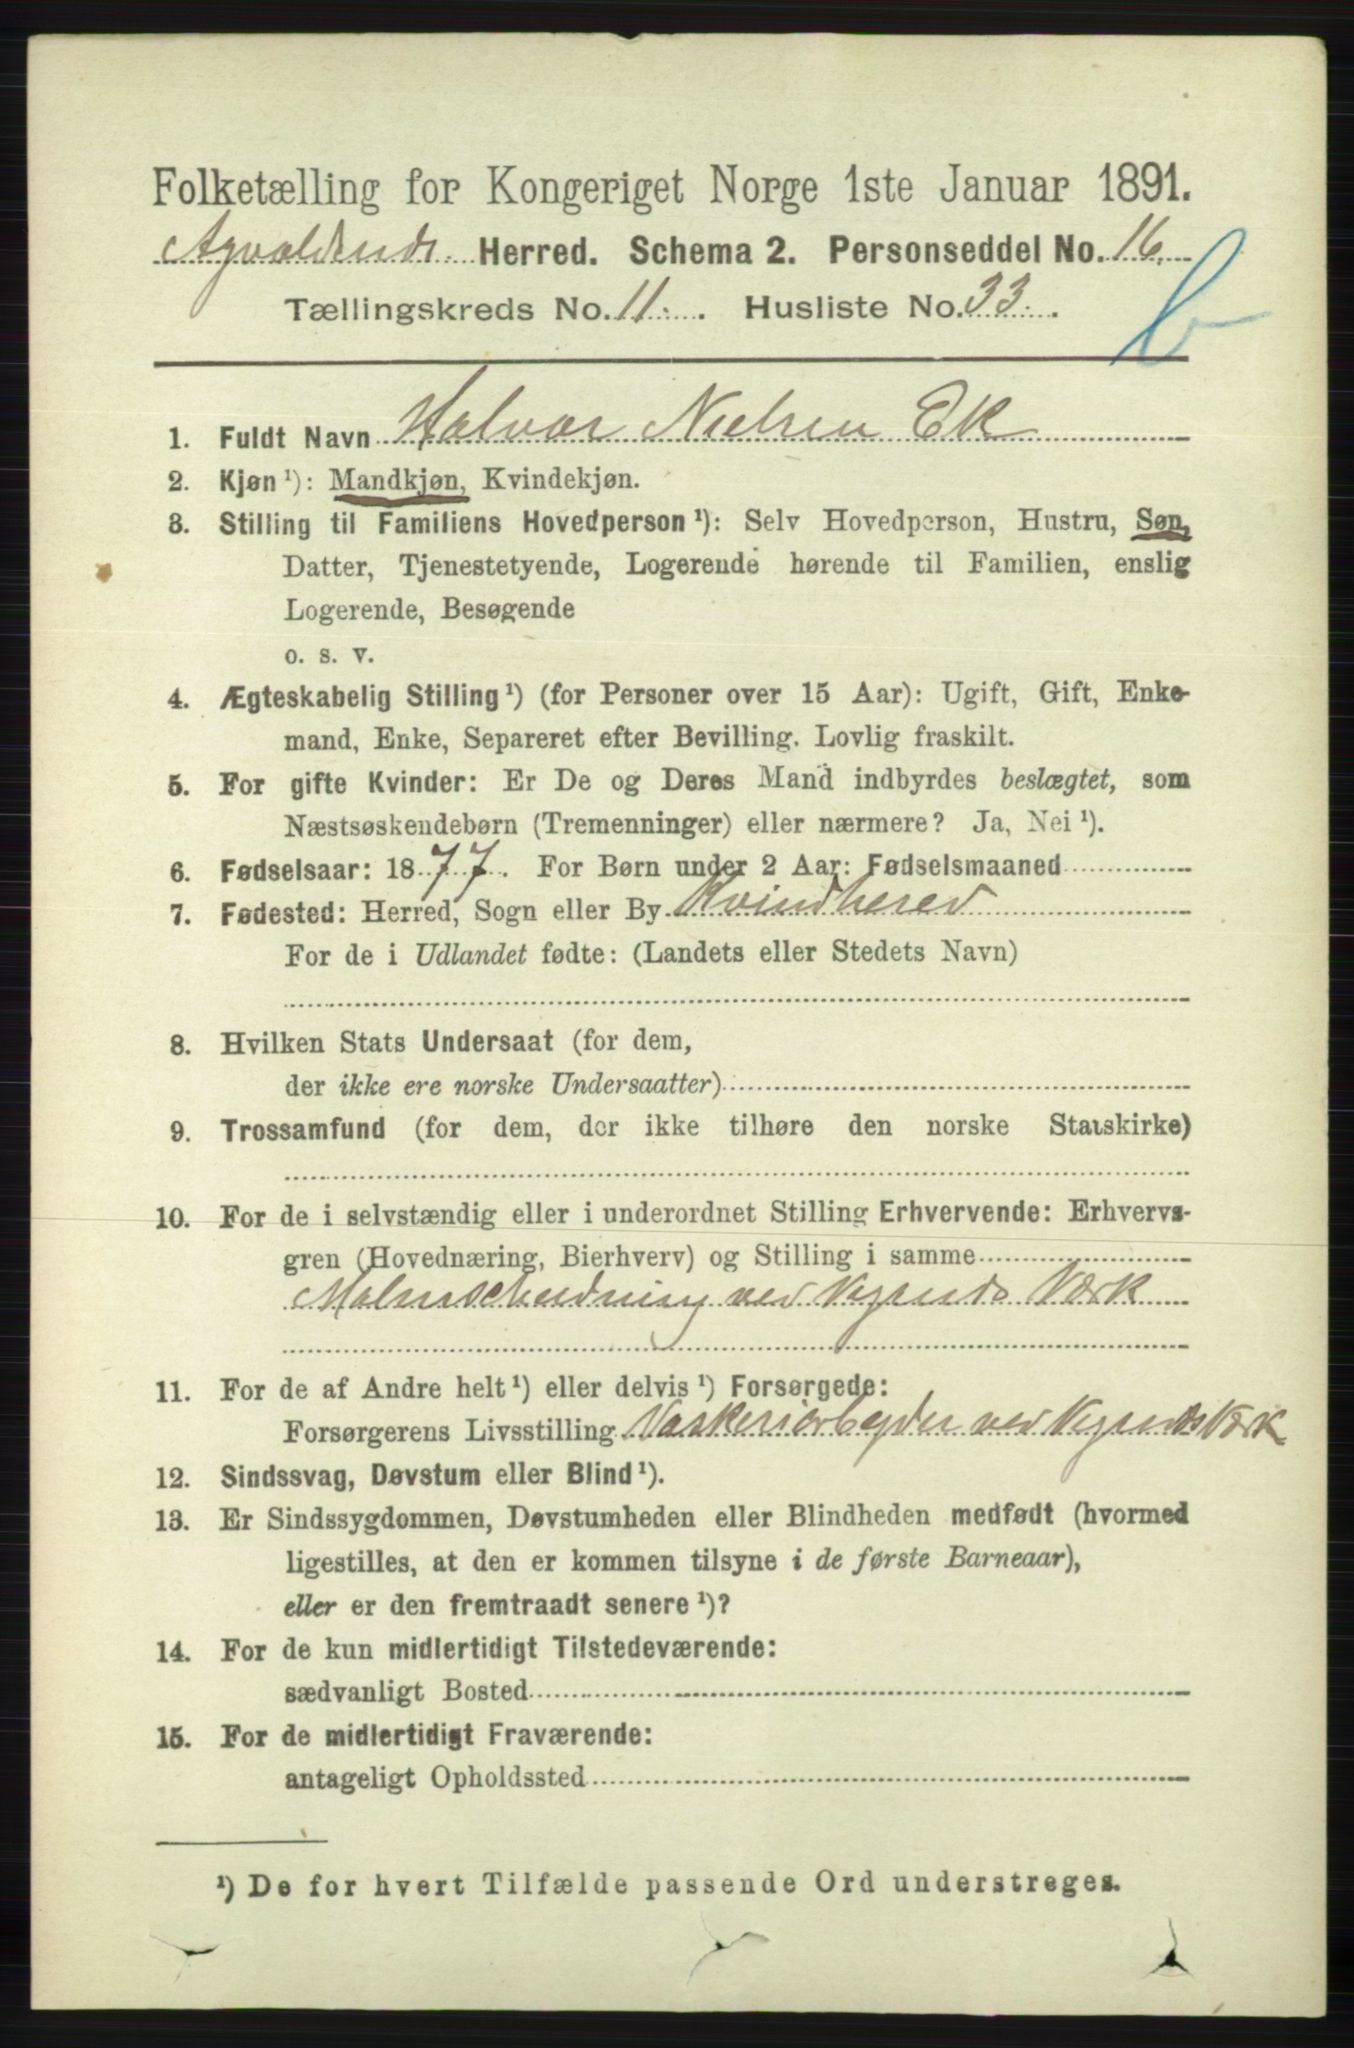 Folketælling for Kongeriget Norge 1ste Januar 1891.
Agvaldsnds Herred. Schema 2. Personseddel No. 16.
Tællingskreds No. 11. Husliste No. 33.
b
1. Fuldt Navn Halvor Nielsen Ek
2. Kjøn ¹): Mandkjøn, Kvindekjøn.
3. Stilling til Familiens Hovedperson ¹): Selv Hovedperson, Hustru, Søn,
Datter, Tjenestetyende, Logerende hørende til Familien, enslig
Logerende, Besøgende
o. s. v.
4. Ægteskabelig Stilling ¹) (for Personer over 15 Aar): Ugift, Gift, Enke-
mand, Enke, Separeret efter Bevilling. Lovlig fraskilt.
5. For gifte Kvinder: Er De og Deres Mand indbyrdes beslægtet, som
Næstsøskendebørn (Tremenninger) eller nærmere? Ja, Nei ¹).
6. Fødselsaar: 1877. For Børn under 2 Aar: Fødselsmaaned
7. Fødested: Herred, Sogn eller By Kvindhered
For de i Udlandet fødte: (Landets eller Stedets Navn)
8. Hvilken Stats Undersaat (for dem,
der ikke ere norske Undersaatter)
9. Trossamfund (for dem, der ikke tilhøre den norske Statskirke)
10. For de i selvstændig eller i underordnet Stilling Erhvervende: Erhvervs-
gren (Hovednæring, Bierhverv) og Stilling i samme
Malmscheidning ved Vigsnes Værk
11. For de af Andre helt ¹) eller delvis ¹) Forsørgede:
Forsørgerens Livsstilling Vaskeriarbeyder ved Vigsnes Værk
12. Sindssvag, Døvstum eller Blind ¹).
13. Er Sindssygdommen, Døvstumheden eller Blindheden medfødt (hvormed
ligestilles, at den er kommen tilsyne i de første Barneaar),
eller er den fremtraadt senere ¹)?
14. For de kun midlertidigt Tilstedeværende:
sædvanligt Bosted
15. For de midlertidigt Fraværende:
antageligt Opholdssted
¹) De for hvert Tilfælde passende Ord understreges.